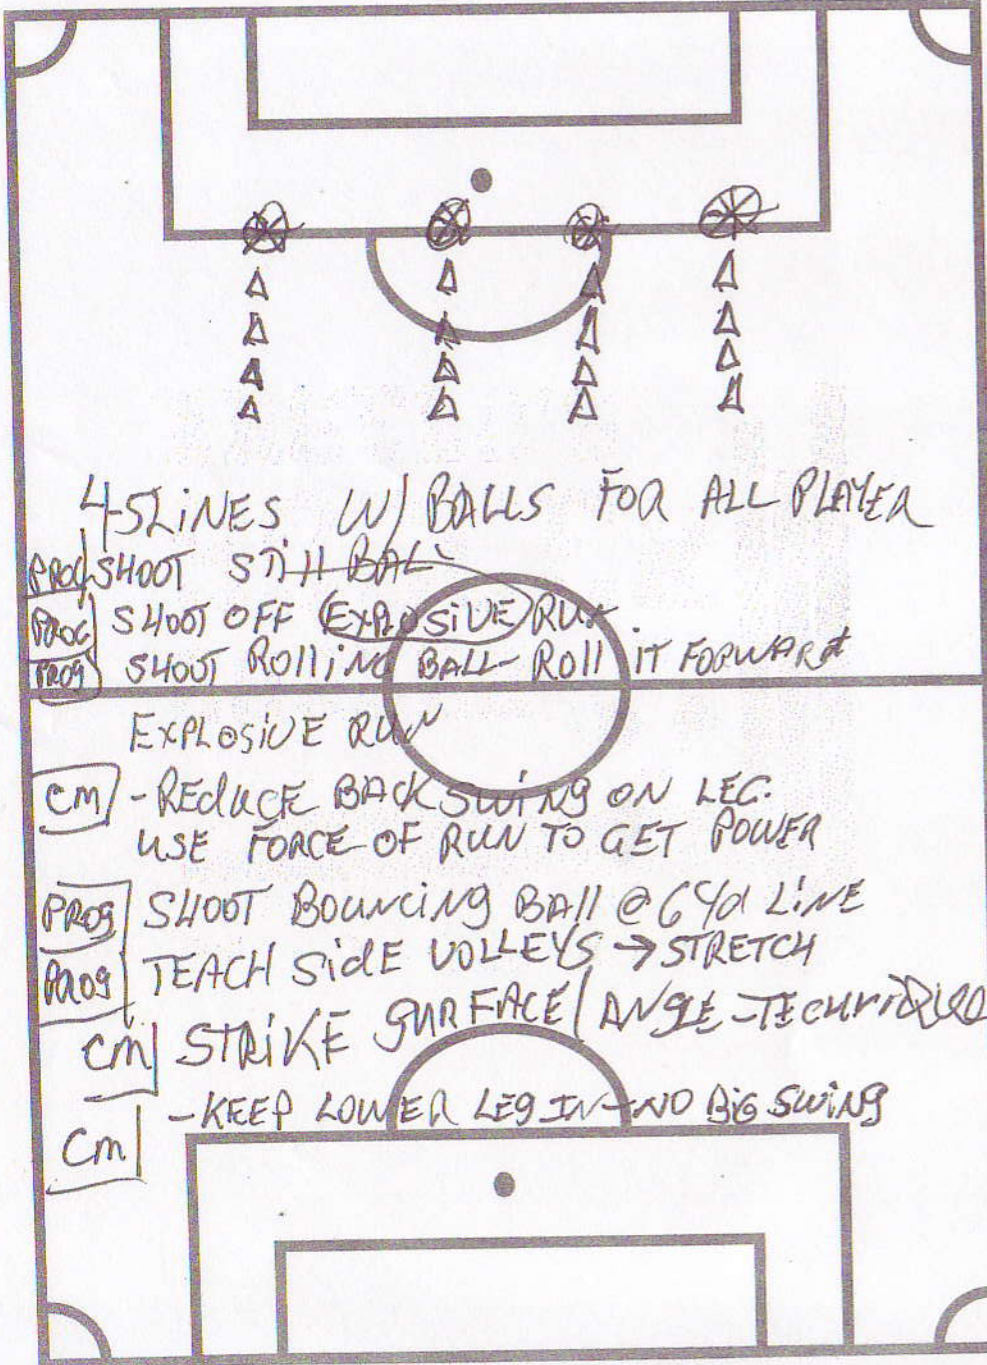 4-5 LINES W/ BALLS FOR ALL PLAYER
PROG SHOOT STILL BALL
PROG SHOOT OFF EXPLOSIVE RUN
PROG SHOOT ROLLING BALL - ROLL IT FORWARD
EXPLOSIVE RUN
CM - REDUCE BACK SWING ON LEG.
USE FORCE OF RUN TO GET POWER
PROG SHOOT BOUNCING BALL @ 6 Yd LINE
PROG TEACH SIDE VOLLEYS → STRETCH
CM STRIKE SURFACE / ANGLE - TECHNIQUE
CM - KEEP LOWER LEG IN - NO BIG SWING